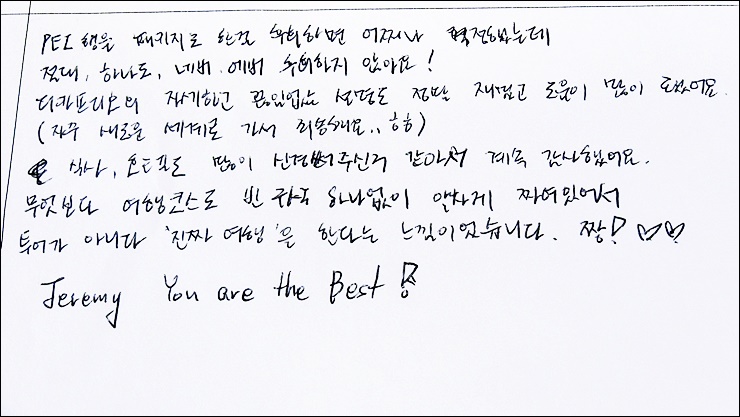 PEI 행을 패키지로 한걸 후회하면 어쩌나 걱정했는데
절대, 하나도, 네버 에버 후회하지 않아요!
디카프리오의 자세하고 끊임없는 설명도 정말 재밌고 도움이 많이 됐어요.
(자꾸 새로운 세계로 가서 죄송해요.. ㅎㅎ)
식사, 호텔도 많이 신경써주신거 같아서 계속 감사했어요.
무엇보다 여행코스도 빈 하나없이 알차게 짜여있어서
투어가 아니다 '진짜 여행'은 한다는 느낌이었습니다. 짱! ♡♡
Jeremy You are the Best!